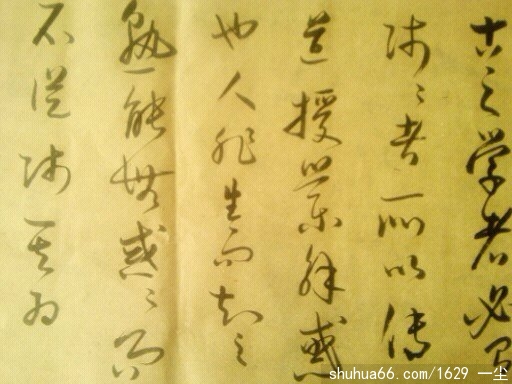 古之学者必有
师师者所以传
道授业解惑
也人非生而知之
孰能无惑惑而
不从师其为
shuhua66.com/1629 一尘